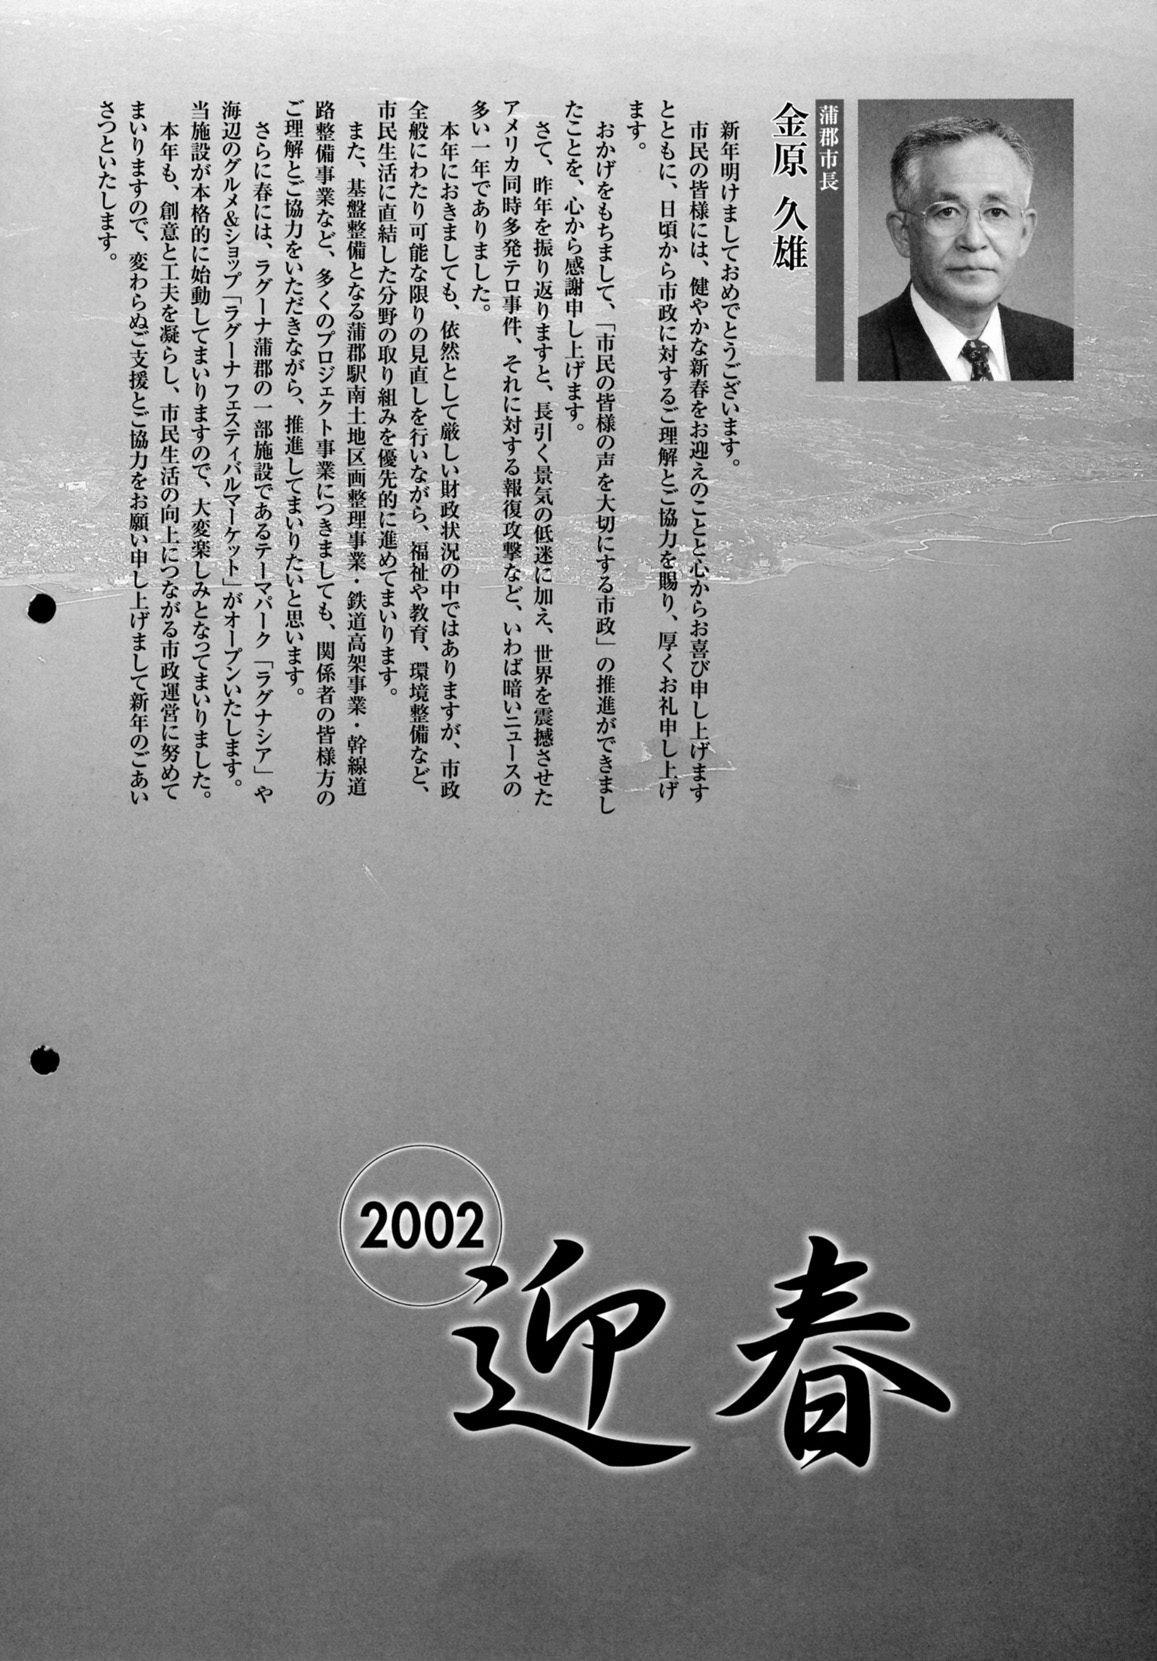 蒲郡市長
金原 久雄
新年明けましておめでとうございます。
市民の皆様には、健やかな新春をお迎えのことと心からお喜び申し上げます
とともに、日頃から市政に対するご理解とご協力を賜り、厚くお礼申し上げ
ます。
おかげをもちまして、「市民の皆様の声を大切にする市政」の推進ができまし
たことを、心から感謝申し上げます。
さて、昨年を振り返りますと、長引く景気の低迷に加え、世界を震撼させた
アメリカ同時多発テロ事件、それに対する報復攻撃など、いわば暗いニュースの
多い一年でありました。
本年におきましても、依然として厳しい財政状況の中ではありますが、市政
全般にわたり可能な限りの見直しを行いながら、福祉や教育、環境整備など、
市民生活に直結した分野の取り組みを優先的に進めてまいります。
また、基盤整備となる蒲郡駅南土地区画整理事業・鉄道高架事業・幹線道
路整備事業など、多くのプロジェクト事業につきましても、関係者の皆様方の
ご理解とご協力をいただきながら、推進してまいりたいと思います。
さらに春には、ラグーナ蒲郡の一部施設であるテーマパーク「ラグナシア」や
海辺のグルメ&ショップ「ラグーナ フェスティバルマーケット」がオープンいたします。
当施設が本格的に始動してまいりますので、大変楽しみとなってまいりました。
本年も、創意と工夫を凝らし、市民生活の向上につながる市政運営に努めて
まいりますので、変わらぬご支援とご協力をお願い申し上げまして新年のごあい
さつといたします。
2002
迎春